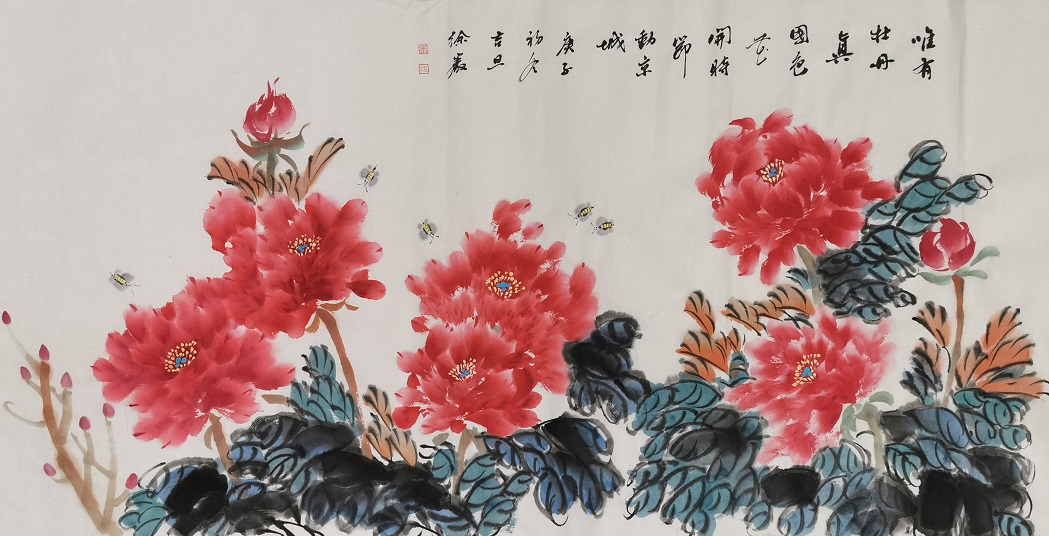 唯有
牡丹
真
國色
花
開時
節
動京
城
庚子
初冬
吉旦
徐嚴